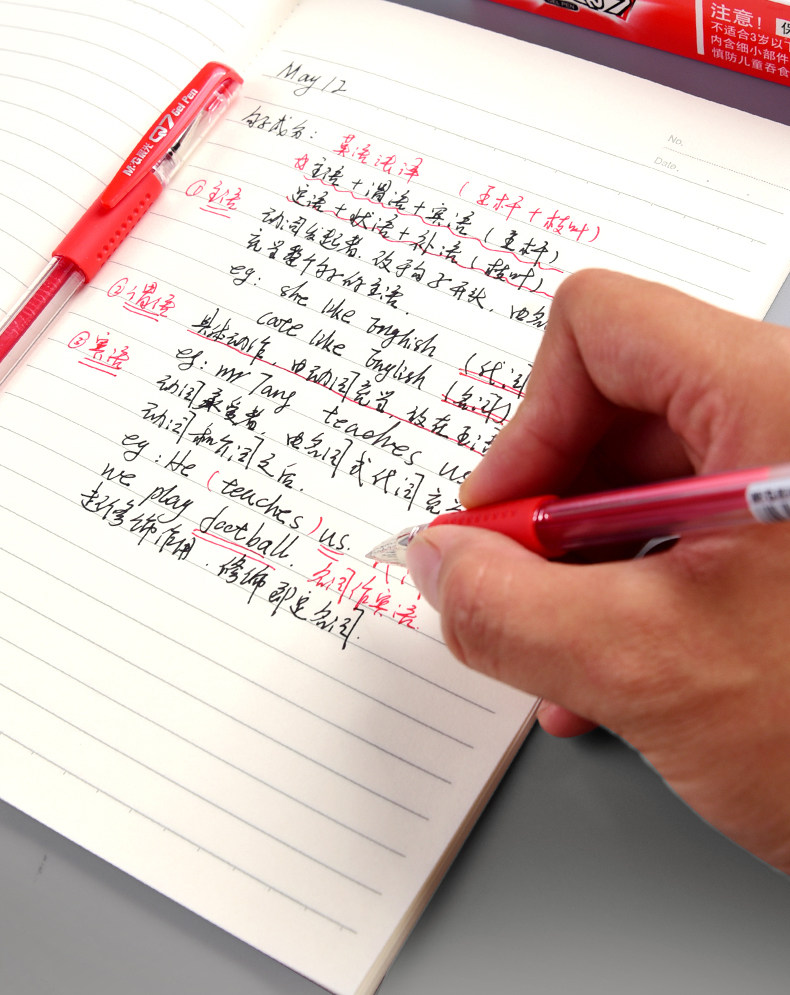 May 12
No.
Date.
句子成分：英语语法（主杆＋枝叶）
主语＋谓语＋宾语（主杆）
①主语
定语＋状语＋补语（枝叶）
动词发起者．放于句子开头，由名
充当整个句子的主语．
eg: she like English（代词
like English（名词）
②谓语
具体动作，由动词充当，放在主语
eg: mr Tang teaches us
③宾语
动词承受者，由名词或代词充当
动词和介词之后．
eg: He (teaches) us.
we play football. 名词作宾语．
起修饰作用．修饰即定名词．
M&G晨光 Q7 Gel Pen
GEL PEN
注意！
不适合3岁以下
内含细小部件
慎防儿童吞食